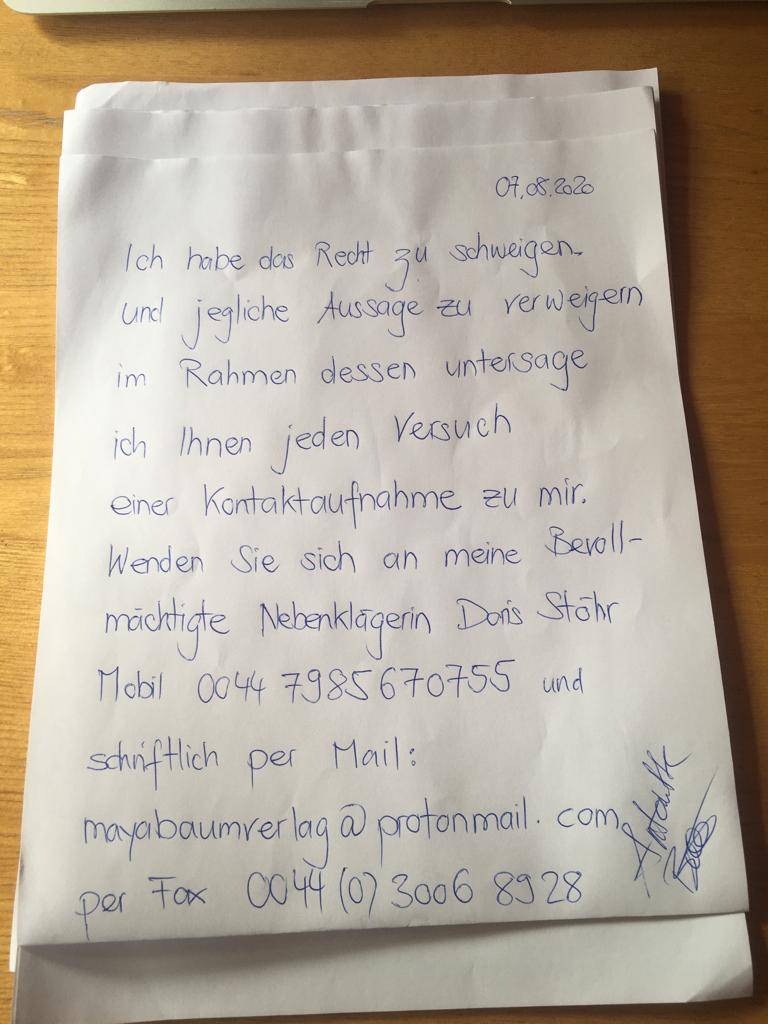 07.08.2020
Ich habe das Recht zu schweigen.
und jegliche Aussage zu verweigern
im Rahmen dessen untersage
ich Ihnen jeden Versuch
einer Kontaktaufnahme zu mir.
Wenden Sie sich an meine Bevoll-
mächtigte Nebenklägerin Doris Stöhr
Mobil 0044 7985670755 und
schriftlich per Mail:
mayabaumverlag@protonmail.com
per Fax 0044 (0) 3006 8928